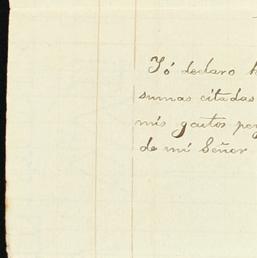 Yó declaro
sumas citadas
mis gastos
de mi Señor